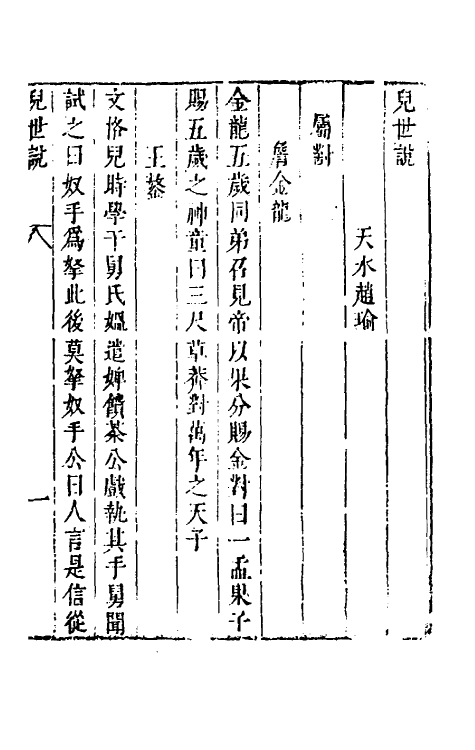 兒世說
天水趙瑜
屬對
詹金龍
金龍五歲同弟召見帝以果分賜金對曰一盂果子
賜五歲之神童曰三尺草莽對萬年之天子
王鏊
文恪兒時學于舅氏媼遣婢饋茶公戲執其手舅聞
試之曰奴手為拏此後莫拏奴手公曰人言是信從
兒世說 一